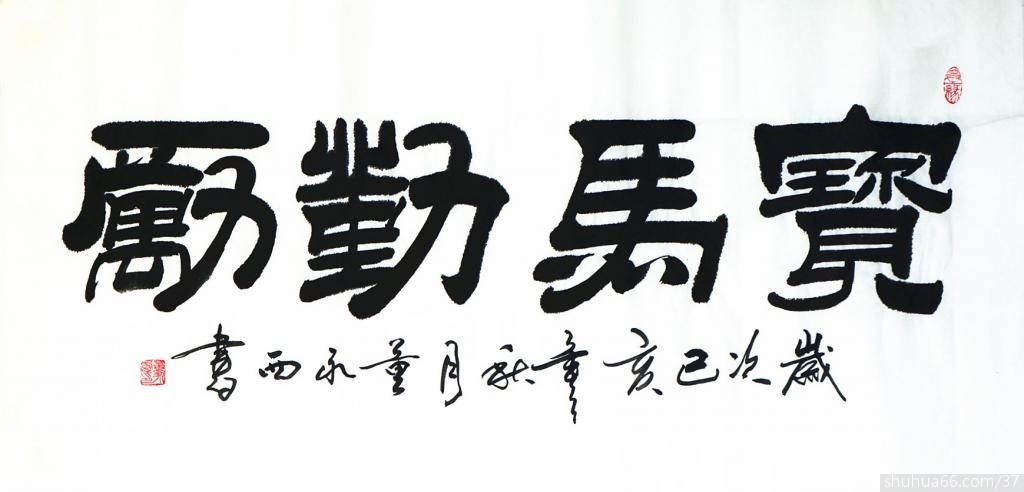 寶馬勤勵
歲次己亥年秋月董永西書
shuhua66.com/37